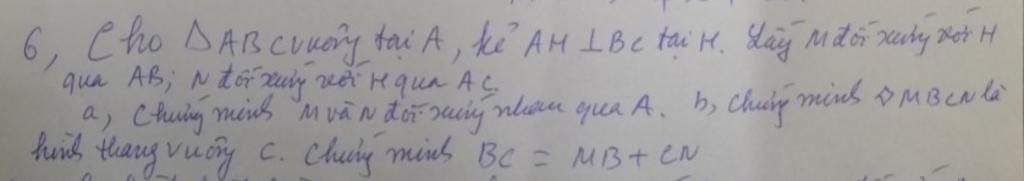 6, Cho △ABC vuông tại A, kẻ AH ⊥ BC tại H. Lấy M đối xứng với H
qua AB; N đối xứng với H qua AC
a, Chứng minh M và N đối xứng nhau qua A. b, Chứng minh ◇ MBCN là
hình thang vuông c. Chứng minh BC = MB + CN